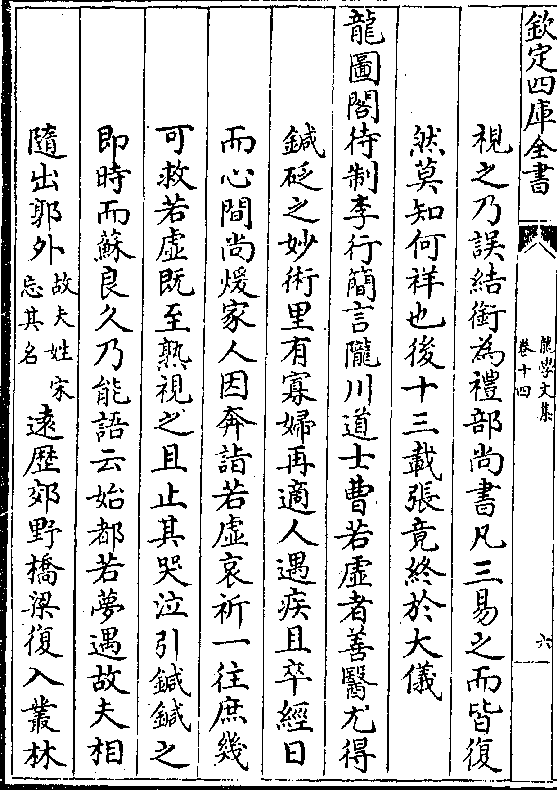 欽定四庫全書
龍學文集
卷十四
六
視之乃誤結銜為禮部尚書凡三易之而皆復
然莫知何祥也後十三載張竟終於大儀
龍圖閣待制李行簡言隴川道士曹若虛者善醫尤得
鍼砭之妙術里有寡婦再適人遇疾且卒經日
而心間尚煖家人因奔詣若虛哀祈一往庶幾
可救若虛既至熟視之且止其哭泣引鍼鍼之
即時而蘇良久乃能語云始都若夢遇故夫相
隨出郭外故夫姓宋忘其名遠歷郊野橋梁復入叢林